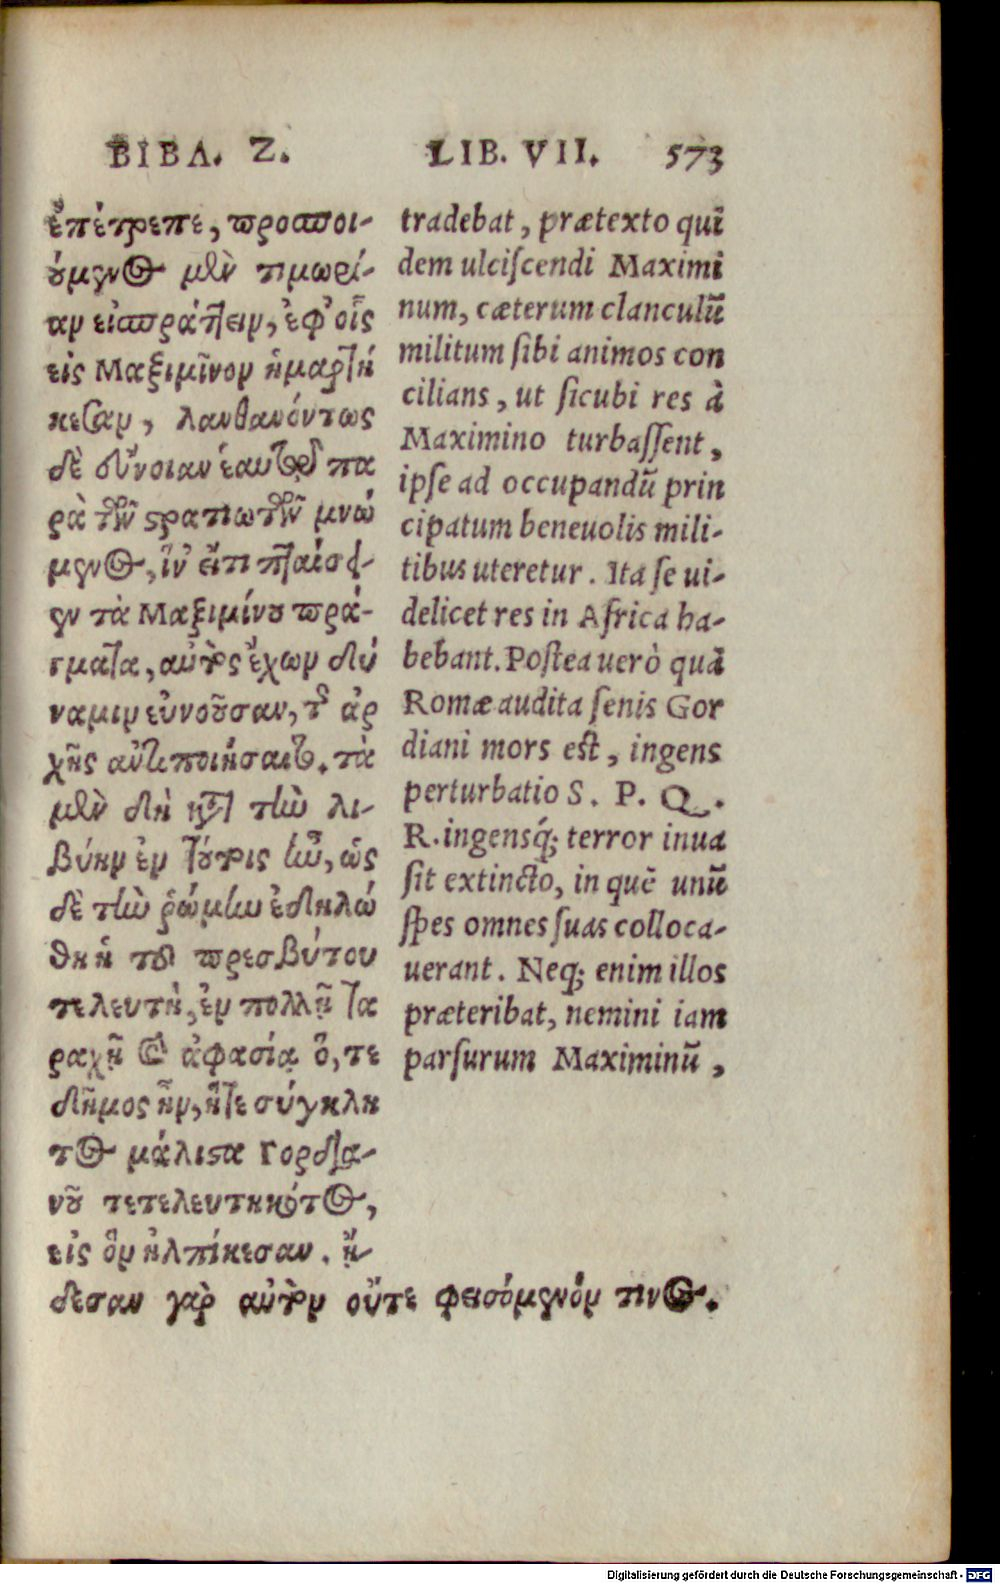 ΒΙΒΛ. Ζ.
ἐπέτρεπε, προσποι-
ούμενος μὲν τιμωρί-
αν εἰσπράττειν, ἐφ' οἷς
εἰς Μαξιμῖνον ἡμαρτή
κεσαν, λανθανόντως
δὲ εὔνοιαν ἑαυτῷ πα
ρὰ τῶν στρατιωτῶν μνώ
μενος, ἵν' εἴ τι πταίσει-
εν τὰ Μαξιμίνου πρά-
γματα, αὐτὸς ἔχων δύ
ναμιν εὐνοῦσαν, τῆς ἀρ
χῆς ἀντιποιήσαιτο. τὰ
μὲν δὴ κατὰ τὴν λι-
βύην ἐν τούτοις ἦν, ὡς
δὲ τὴν ῥώμην ἐδηλώ
θη ἡ τοῦ πρεσβύτου
τελευτὴ, ἐν πολλῇ τα
ραχῇ καὶ ἀφασίᾳ ὅ, τε
δῆμος ἦν, ἥτε σύγκλη
τος μάλιστα Γορδια-
νοῦ τετελευτηκότος,
εἰς ὃν ἠλπίκεσαν. ᾔ-
δεσαν γὰρ αὐτὸν οὔτε φεισόμενόν τινος.
LIB. VII. 573
tradebat, prætexto quĩ
dem ulciſcendi Maximi
num, cæterum clanculũ
militum ſibi animos con
cilians, ut ſicubi res à
Maximino turbaſſent,
ipſe ad occupandũ prin
cipatum beneuolis mili-
tibus uteretur. Ita ſe ui-
delicet res in Africa ha-
bebant. Poſtea uerò quã
Romæ audita ſenis Gor
diani mors eſt, ingens
perturbatio S. P. Q.
R. ingensq́; terror inua
ſit extincto, in quẽ unũ
ſpes omnes ſuas colloca-
uerant. Neq; enim illos
præteribat, nemini iam
parſurum Maximinũ,
Digitalisierung gefördert durch die Deutsche Forschungsgemeinschaft - DFG